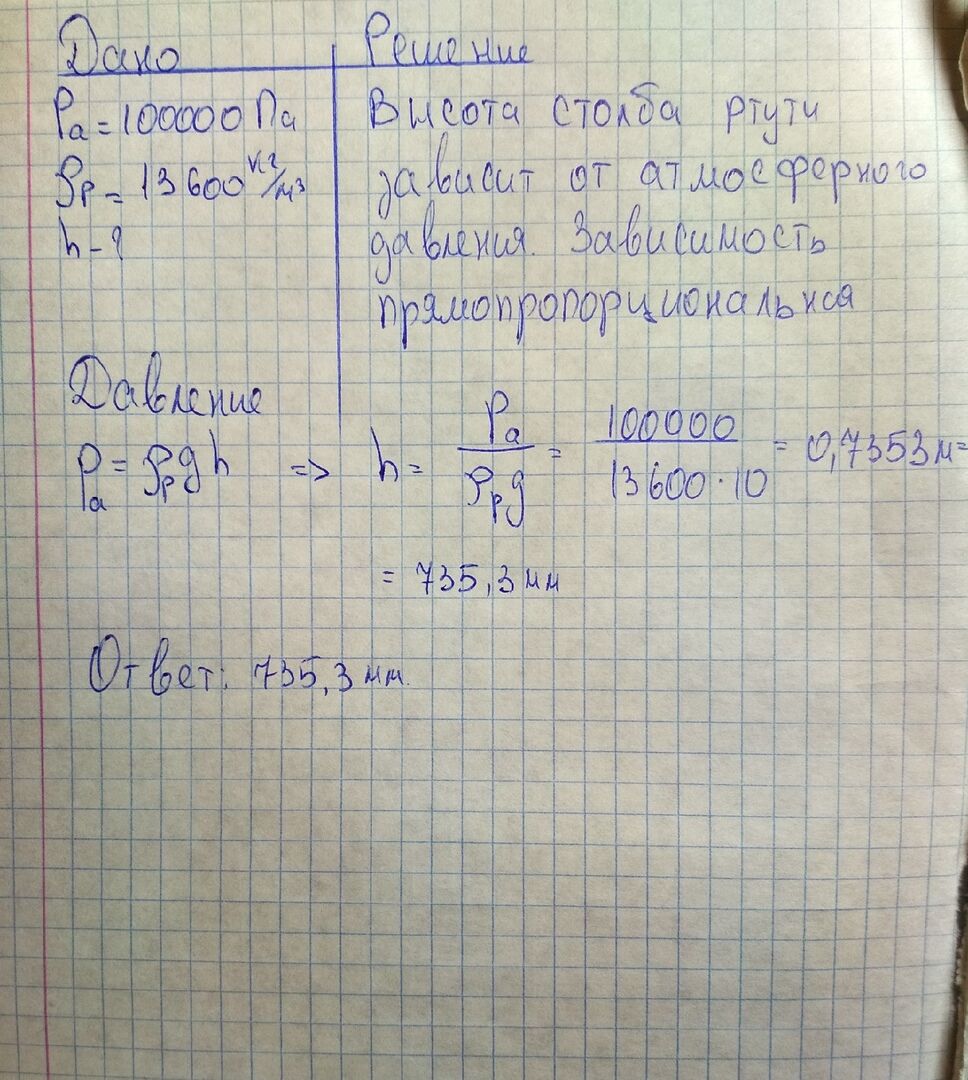 Дано
Решение
Pa = 100000 Па
ρр = 13600 кг/м3
h - ?
Высота столба ртути
зависит от атмосферного
давления. Зависимость
прямопропорциональная
Давление
Pa = ρрgh => h = Pa/ρрg = 100000/13600·10 = 0,7353м=
= 735,3мм
Ответ: 735,3мм.